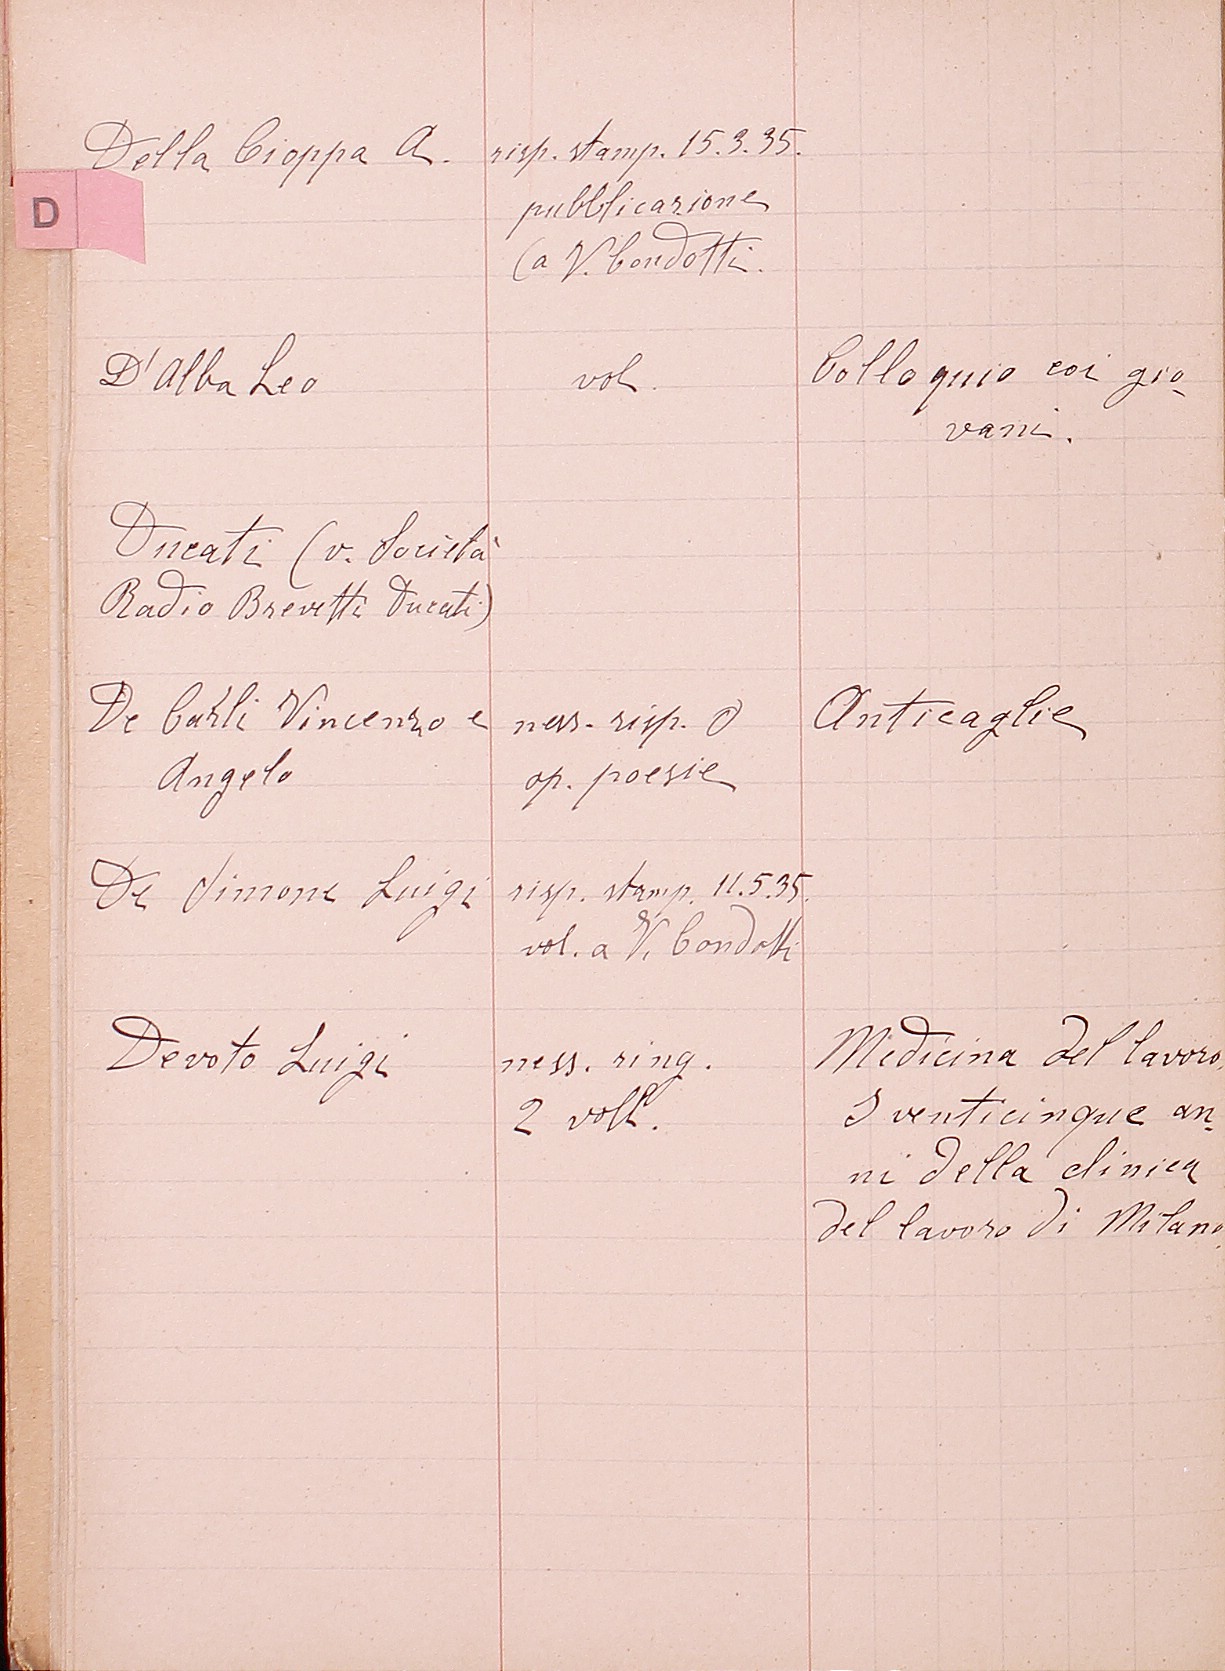 Della Cioppa A. risp. stamp. 15.3.35.
pubblicazione
(a V. Condotti.
D
D'Alba Leo vol. Colloquio coi gio-
vani.
Ducati (v. Società
Radio Brevetti Ducati)
De Carli Vincenzo e ness. risp. Anticaglie
Angelo op. poesie
De Simone Luigi risp. stamp. 11.5.35.
vol. a V. Condotti
Devoto Luigi ness. ring. Medicina del lavoro.
2 voll. I venticinque an-
ni della clinica
del lavoro di Milano.